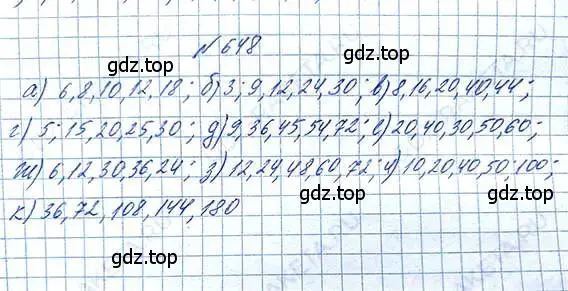 №648
gdz.top gdz.top
а) 6,8,10,12,18; б) 3; 9,12,24,30; в) 8,16,20,40,44;
г) 5; 15,20,25,30; д) 9,36,45,54,72; е) 20,40,30,50,60;
gdz.top gdz.top
ж) 6,12,30,36,24; з) 12,24,48,60,72; и) 10,20,40,50,100;
gdz.top
к) 36,72,108,144,180
gdz.top